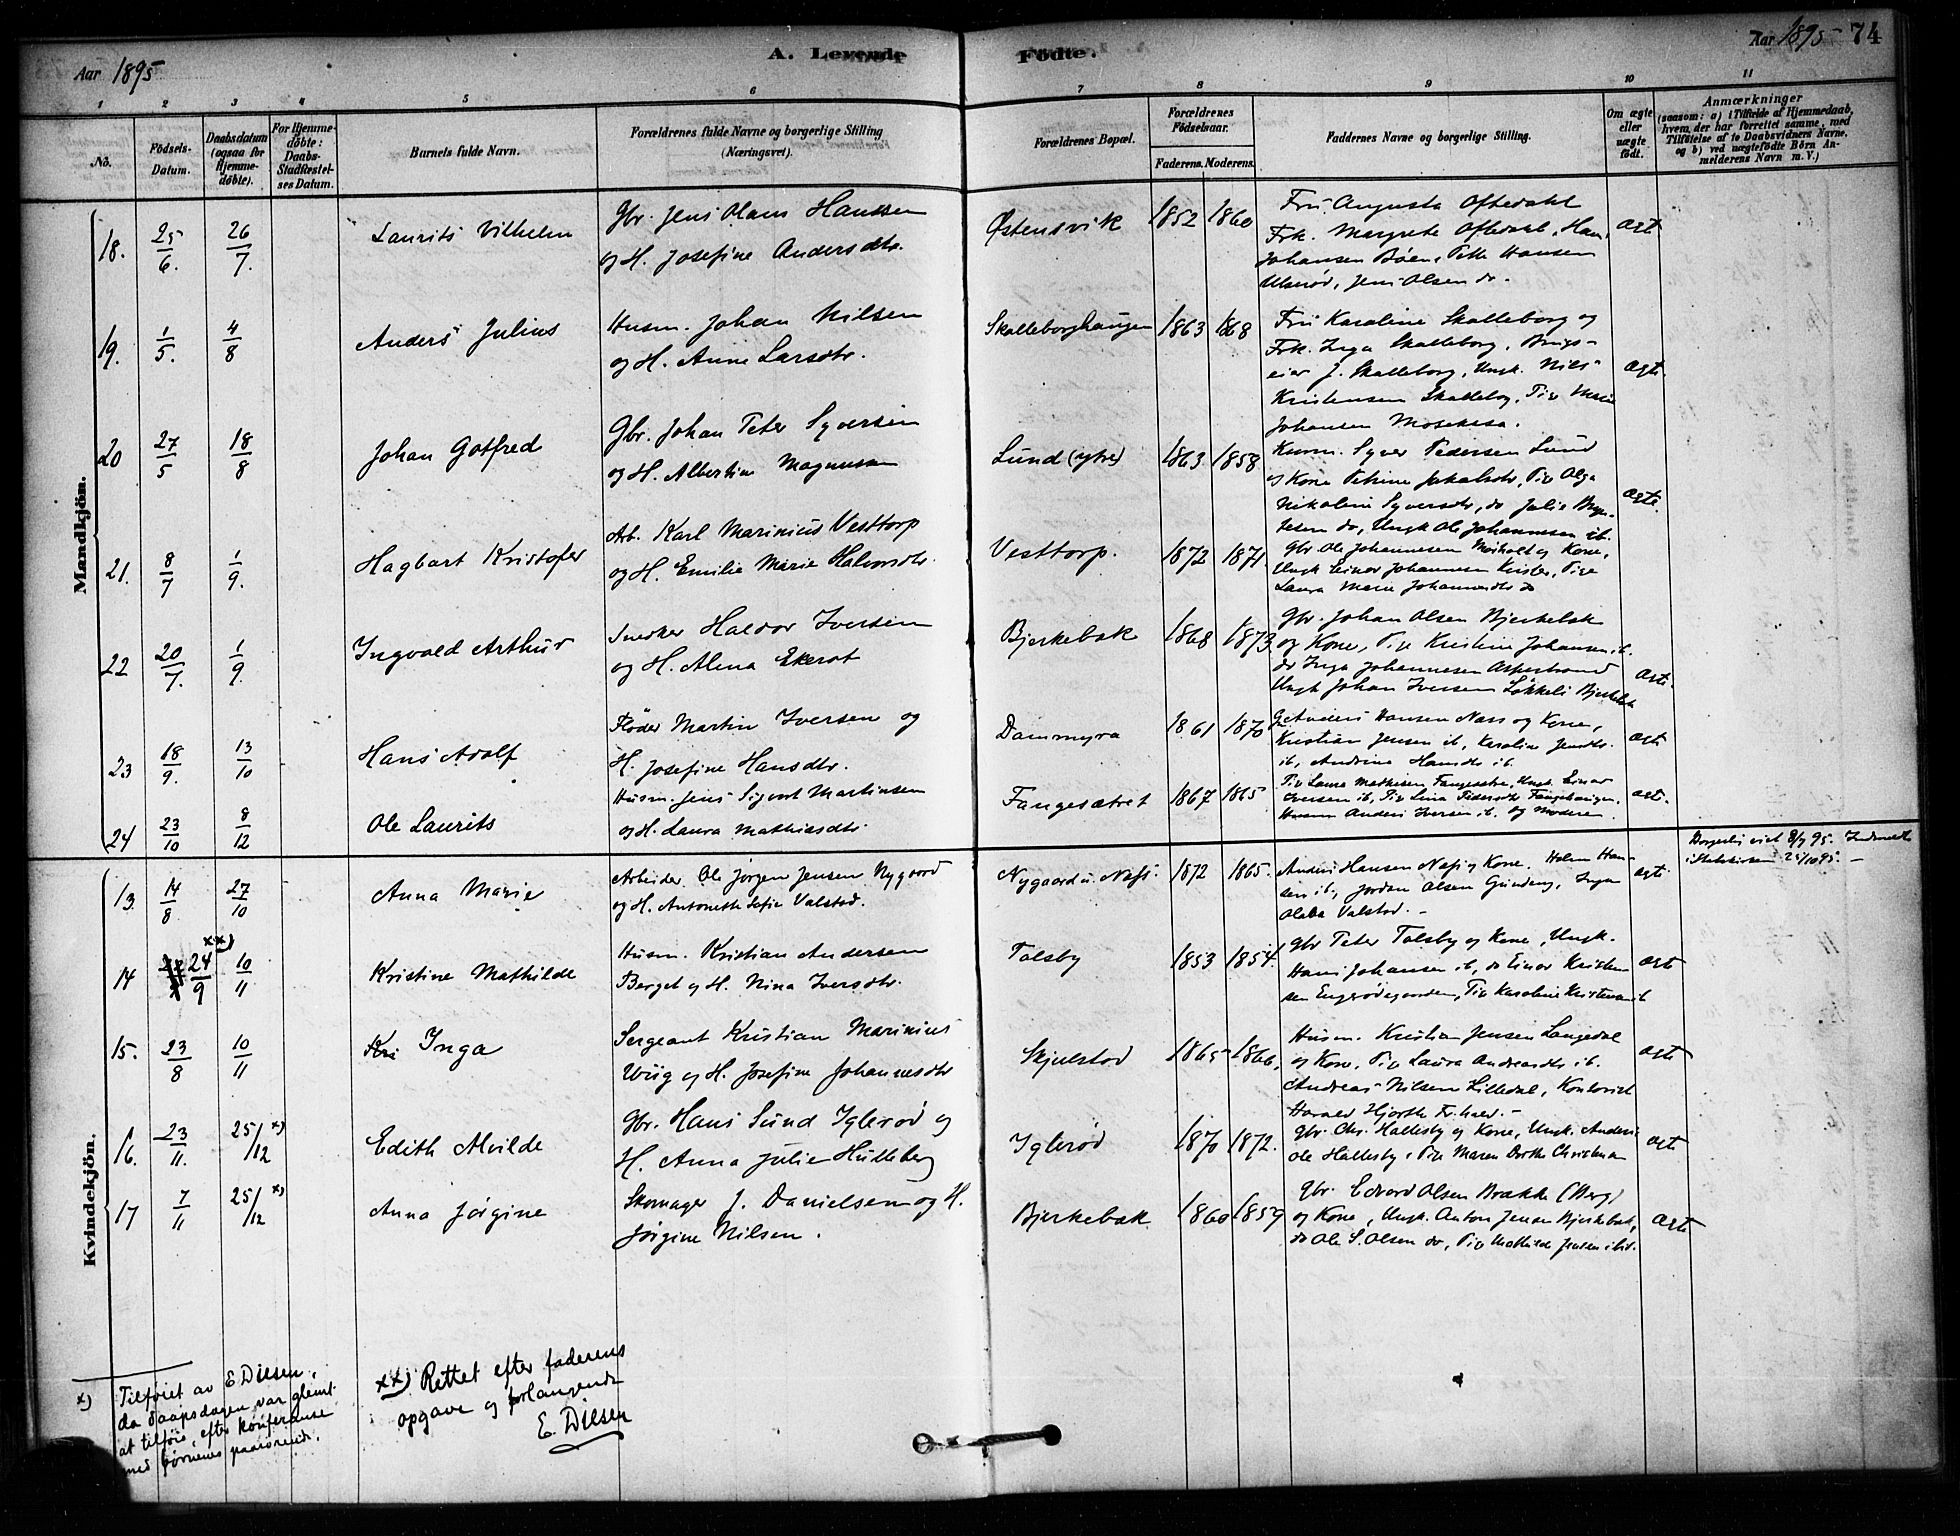 Aar 1895
A. Levende
Födte.
Aar 1895 74
1 2 3 4 5 6 7 8 9 10 11
No.
Födsels-
Datum.
Daabsdatum
(ogsaa for
Hjemme-
döbte).
For Hjemme-
döbte:
Daabs-
Stadfæstel-
ses Datum.
Barnets fulde Navn.
Forældrenes fulde Navne og borgerlige Stilling
(Næringsvei).
Forældrenes Bopæl.
Forældrenes
Födselsaar.
Faderens. Moderens.
Faddernes Navne og borgerlige Stilling.
Om ægte
eller
uægte
født.
Anmærkninger
(saasom: a) i Tilfælde af Hjemmedaab,
hvem, der har forrettet samme, med
Tilföielse af to Daabsvidners Navne.
og b) ved uægtefödte Börn An-
melderens Navn m. V.)
Mandkjön.
18. 25/6. 26/7. Laurits Vilhelm
Gbr. Jens Olaus Hanssen
og H. Josefine Andersdtr.
Østensvik 1852 1860
Fru Augusta Oftedahl
Frk. Margrete Oftedahl, Hans
Johansen Böen, Peter Hansen
Ulserød, Jens Olsen do.
ægte
19. 1/5. 4/8 Anders Julius
Husm. Johan Nilsen
og H. Anne Larsdtr.
Skalleborghaugen 1863 1868
Fru Karoline Skalleborg og
Frk. Inga Skalleborg, Brugs-
eier J. Skalleborg, Ungk. Nils
Kristensen Skalleborg, Pige Marie
Johansen
ægte
20 27/5 18/8 Johan Gotfred
Gbr. Johan Peter Syversen
og H. Albertine Magnussen
Lund (ytre) 1863 1858
Syver Pedersen Lund
og Kone Petrine Jakobsdtr, Pige Olga
Nikoline Syversdtr, do Julie
do, Ungk Ole Johannessen ib.
ægte.
21. 8/7 1/9. Hagbart Kristofer
Arb. Karl Marinius Vesttorp
og H. Emilie Marie Halvorsdtr.
Vesttorp. 1872 1871.
Gbr. Ole Johannesen og Kone,
Ungk Einar Johannesen, Pige
Laura Marie Johannesdtr do
22 20/7. 1/9. Ingvald Arthur
Snedker Haldor Iversen
og H. Alma Ekerot
Bjerkebæk 1868 1873
Gbr. Johan Olsen Bjerkebæk
og Kone, Pige Kristine Johansen ib.
do Inga Johannesen Aspestrand
Ungk Johan Iversen Løkkeli Bjerkebæk
ægte.
23 18/9. 13/10 Hans Adolf
Fløder Martin Iversen og
H. Josefine Hansdtr.
Dammyra 1861 1870
Anders Hansen Næss og Kone,
Kristian Jensen ib, Karoline Jensdtr.
ib, Andrine Hansdtr ib
ægte
24 23/10 8/12 Ole Laurits
Husm. Jens Sigvart Martinsen
og H. Laura Mathiasdtr.
Fangesætret 1867 1865
Pige Laura Mathisen Fangesætre, Ungk Einar
Iversen ib, Pige Lina Pedersdtr Fangehaugen,
Husm Anders Iversen ib. og Moderen.
ægte.
Kvindekjön.
13. 14/8 27/10 Anna Marie
Arbeider Ole Jørgen Jensen Nygaard
og H. Antonette Sofie Valstad.
Nygaard u. Næss. 1872 1865.
Anders Hansen Næss og Kone. Helene Han-
sen ib, Jordan Olsen Grindeng, Inga
Olava Valstad. –
ægte
Borgerlig viet 8/7 95. Indmeldt
i Statskirken 25/10 95. –
14 24/9 xx) 10/11 Kristine Mathilde
Husm. Kristian Andersen
Berget og H. Nina Iversdtr.
Tolsby 1853 1854.
Gbr Peter Tolsby og Kone, Ungk.
Hans Johansen ib, do Einar Kristen-
sen Engerødegaarden, Pige Karoline Kristensen ib
ægte
15. 23/8 10/11 Kri Inga
Sergeant Kristian Marinius
Wiig og H. Josefine Johannesdtr
Skjelstad 1865 1866,
Husm. Kristian Jensen Langedal
og Kone, Pige Laura Andreasdtr ib.
Andreas Nilsen Lilledal, Kontorist
Harald Hjorth Fr.hald. –
ægte
16. 23/11. 25/12 x) Edith Alvilde
Gbr. Hans Lund Iglerød og
H. Anna Julie Hulleberg
Iglerød 1870 1872.
Gbr. Chr. Hallesby og Kone, Ungk. Anders
Ole Hallesby, Pige Maren Dorthe Christensen
ægte
17 7/11 25/12 x) Anna Jørgine
Skomager J. Danielsen og H.
Jørgine Nilsen.
Bjerkebæk 1860 1859
Gbr. Edvard Olsen Brække (Berg)
og Kone, Ungk. Anton Jensen Bjerkebæk,
do Ole S. Olsen do, Pige Mathilde Jensen ibid.
ægte
x) Tilføiet av E Dilsen,
da daapsdagen var glemt
at tilføie, efter konferanse
med børnenes paarørende.
xx) Rettet efter faderens
opgave og forlangende
E. Dilsen